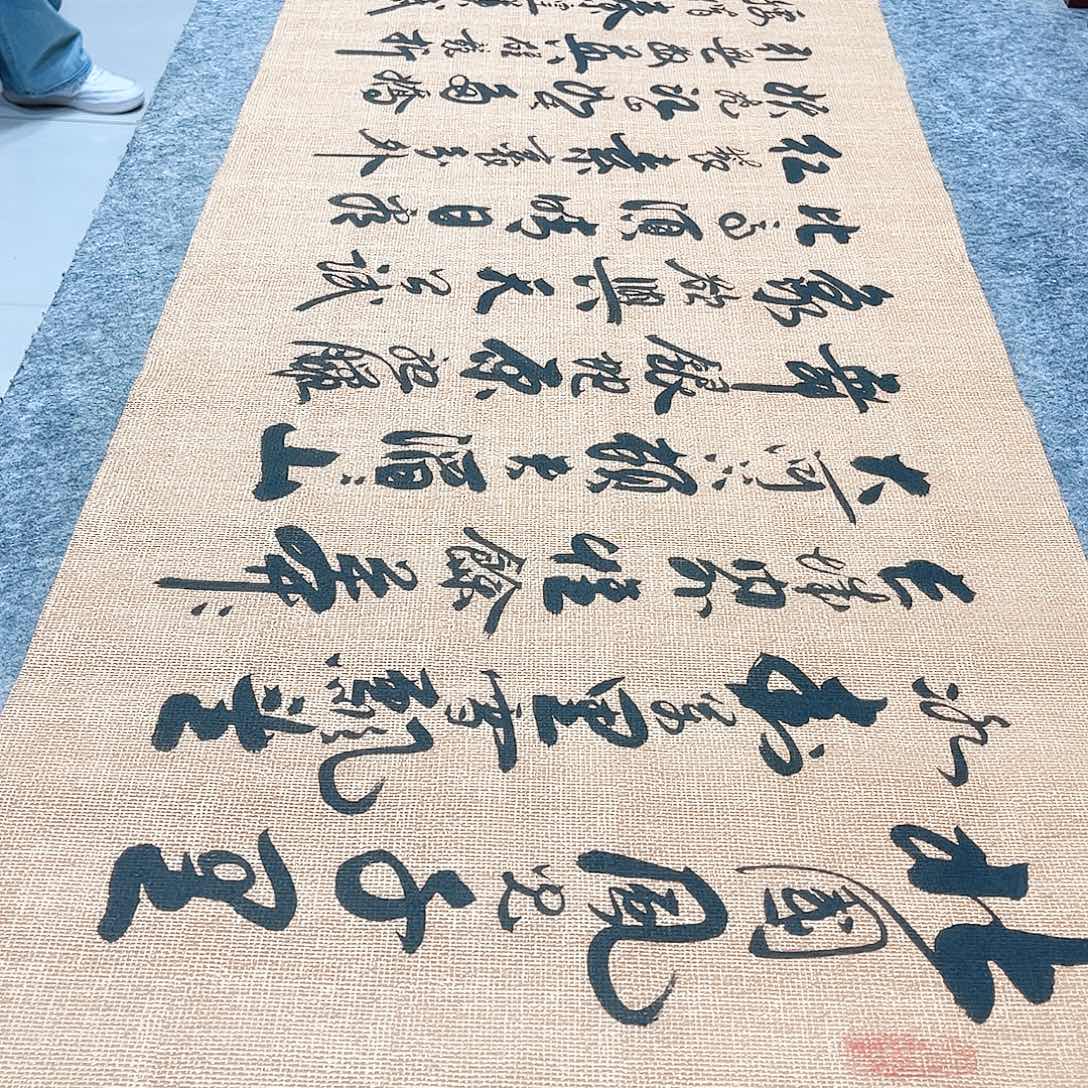 北國風光千里
冰封萬里雪飄望
長城内外惟餘莽莽
大河上下頓失滔滔山
舞銀蛇原馳臘
象欲與天公試
比高須晴日看
紅裝素裹分外
妖嬈江山如此多嬌
引無數英雄競折
腰惜秦皇漢武